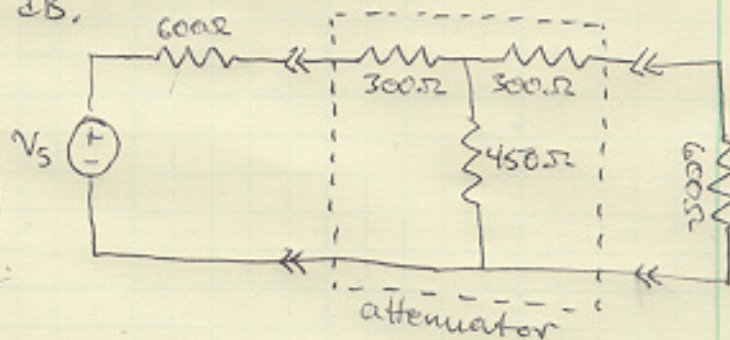 dB.
600Ω
300Ω 300Ω
Vs + -
450Ω
600Ω
attenuator